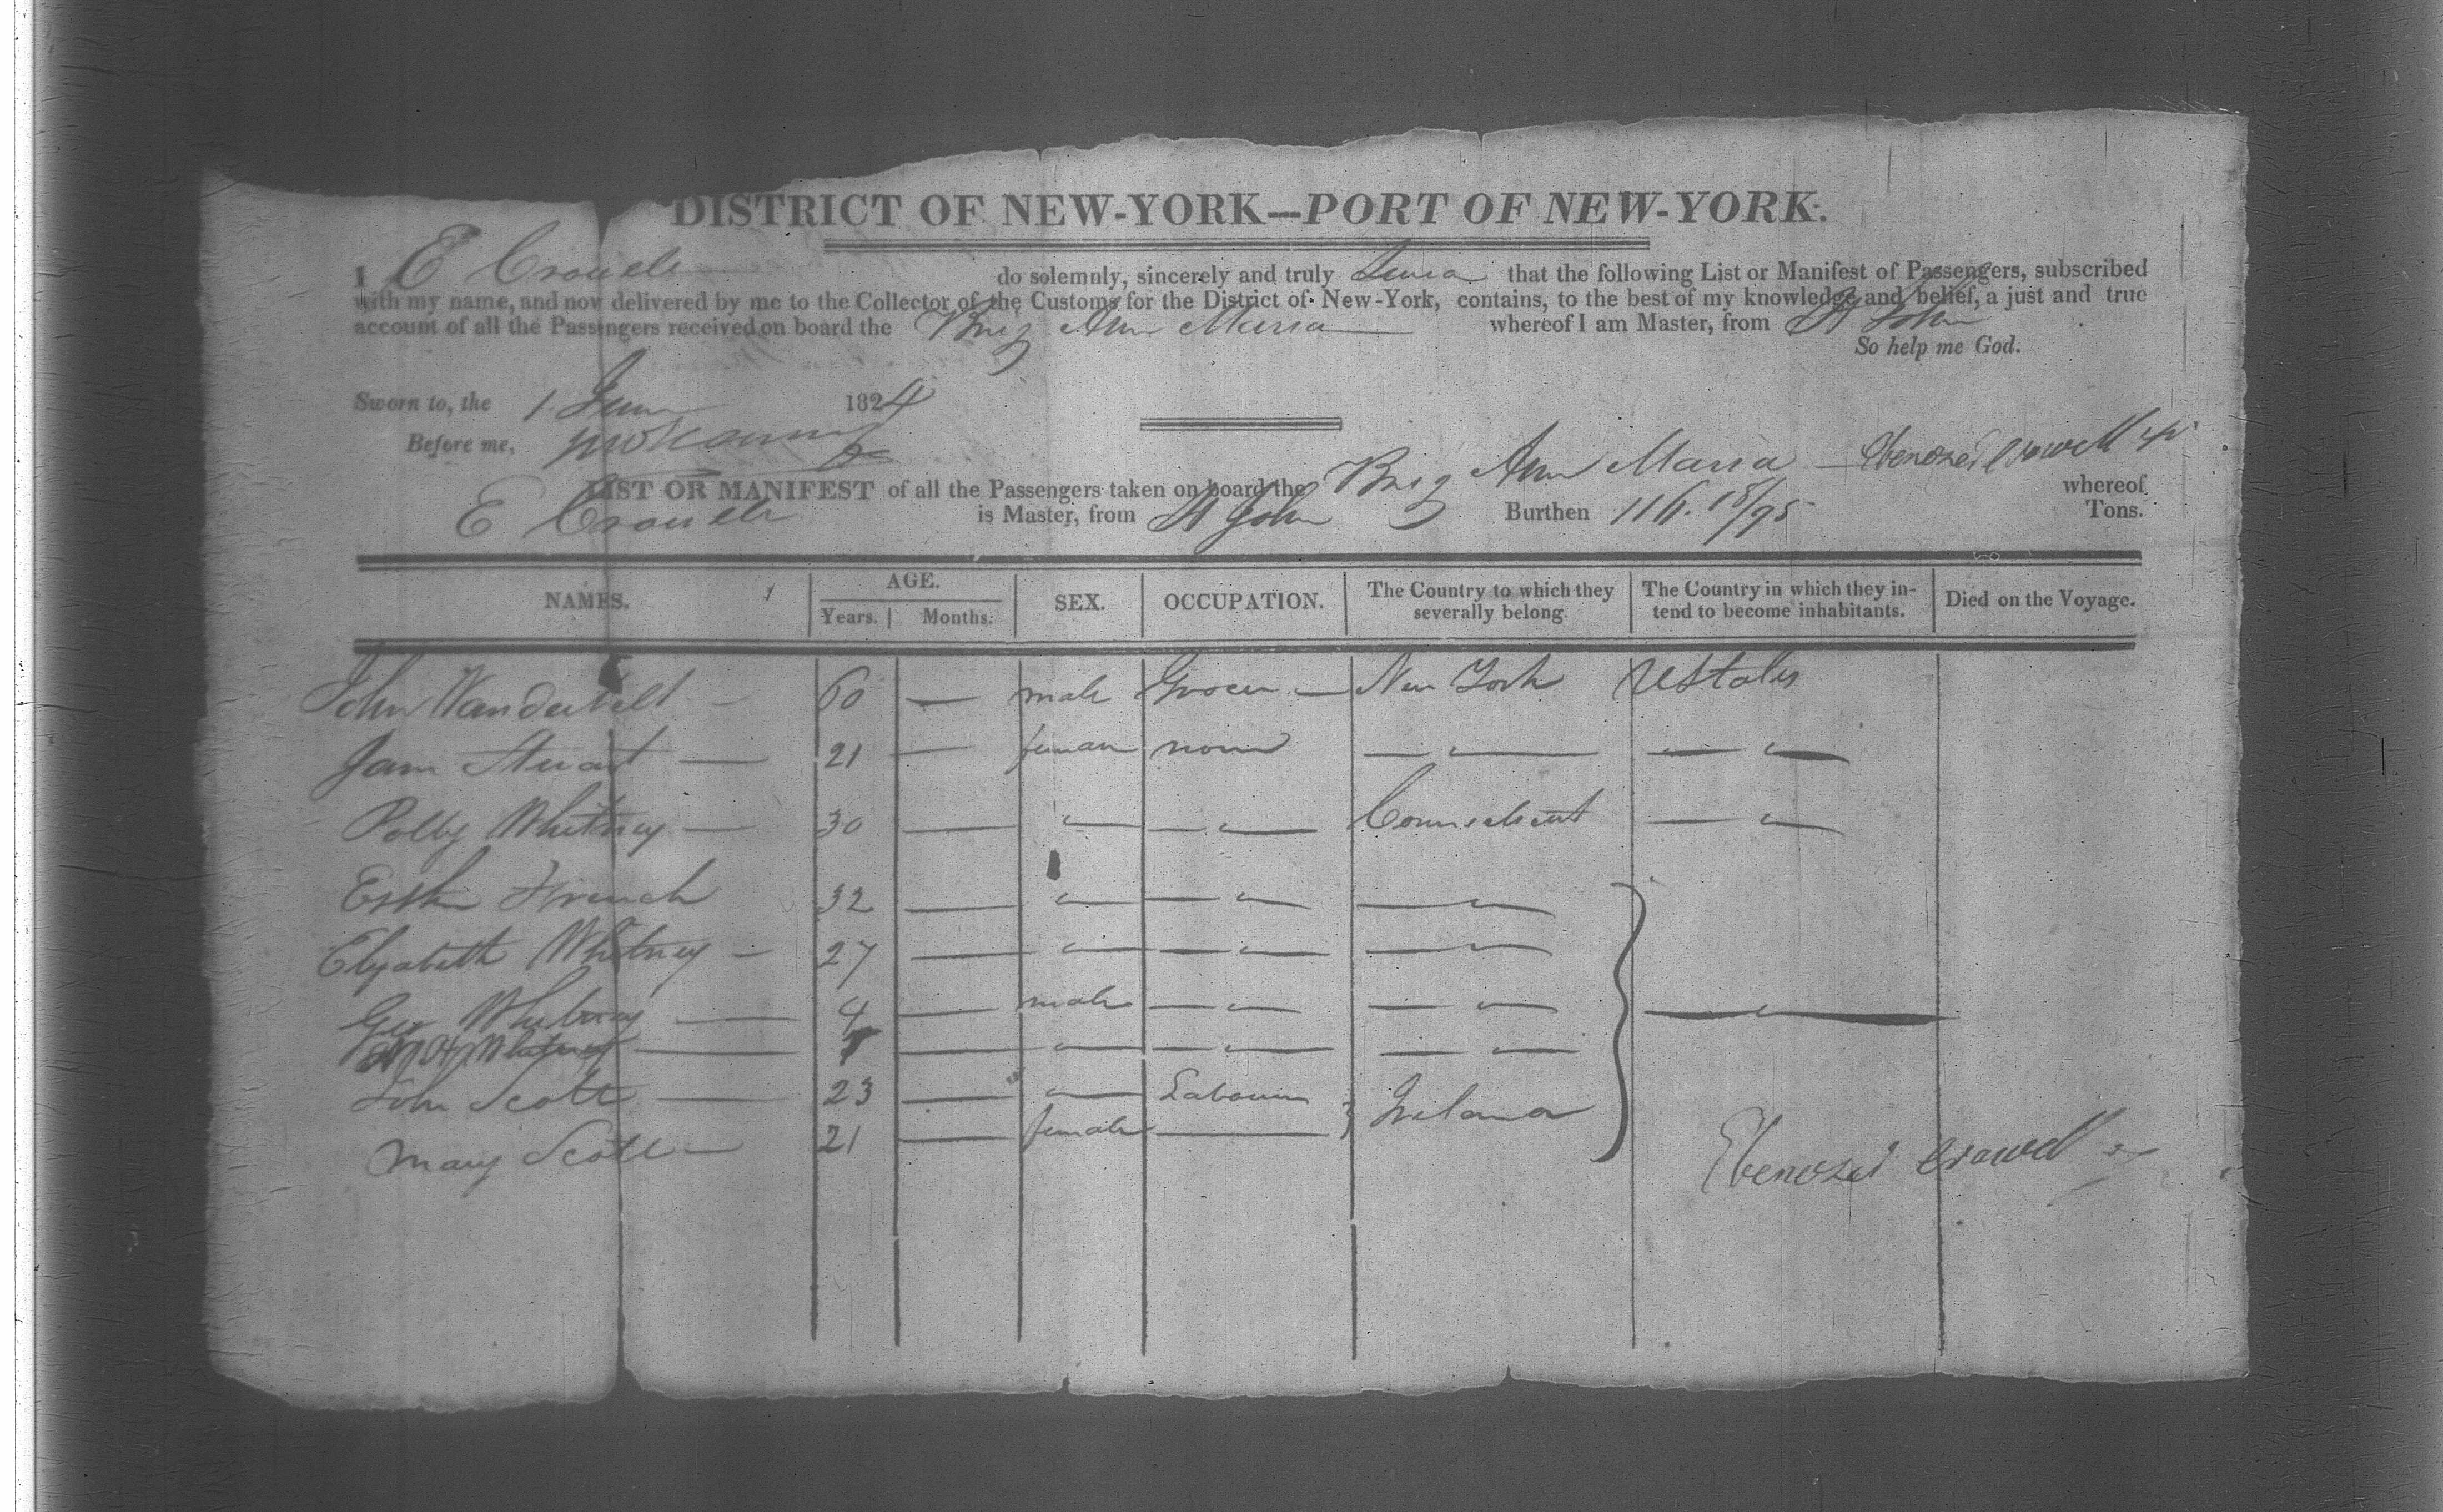 DISTRICT OF NEW-YORK—PORT OF NEW-YORK.
I E Crowell do solemnly, sincerely and truly swear that the following List or Manifest of Passengers, subscribed
with my name, and now delivered by me to the Collector of the Customs for the District of New-York, contains, to the best of my knowledge and belief, a just and true
account of all the Passengers received on board the Brig Ann Maria whereof I am Master, from St John
So help me God.
Sworn to, the 1 June 1824
Before me,
LIST OR MANIFEST of all the Passengers taken on board the Brig Ann Maria — Ebenezer Crowell whereof
E Crowell is Master, from St John Burthen 116. 18/95 Tons.
NAMES. AGE. Years. Months. SEX. OCCUPATION. The Country to which they severally belong. The Country in which they intend to become inhabitants. Died on the Voyage.
John Vanderbelt — 60 — male Grocer — New York UStates
Jane Stuart — 21 — female none — " — — " —
Polly Whitney — 30 — " — " — Connecticut — " —
Esther French 32 — " — " — — " —
Elizabeth Whitney — 27 — " — " — — " —
Geo Whitney — 4 — male — " — — " — — " —
Whitney — — " — " — — " —
John Scott — 23 — " — Labourer } Ireland
Mary Scott — 21 — female —
Ebenezer Crowell